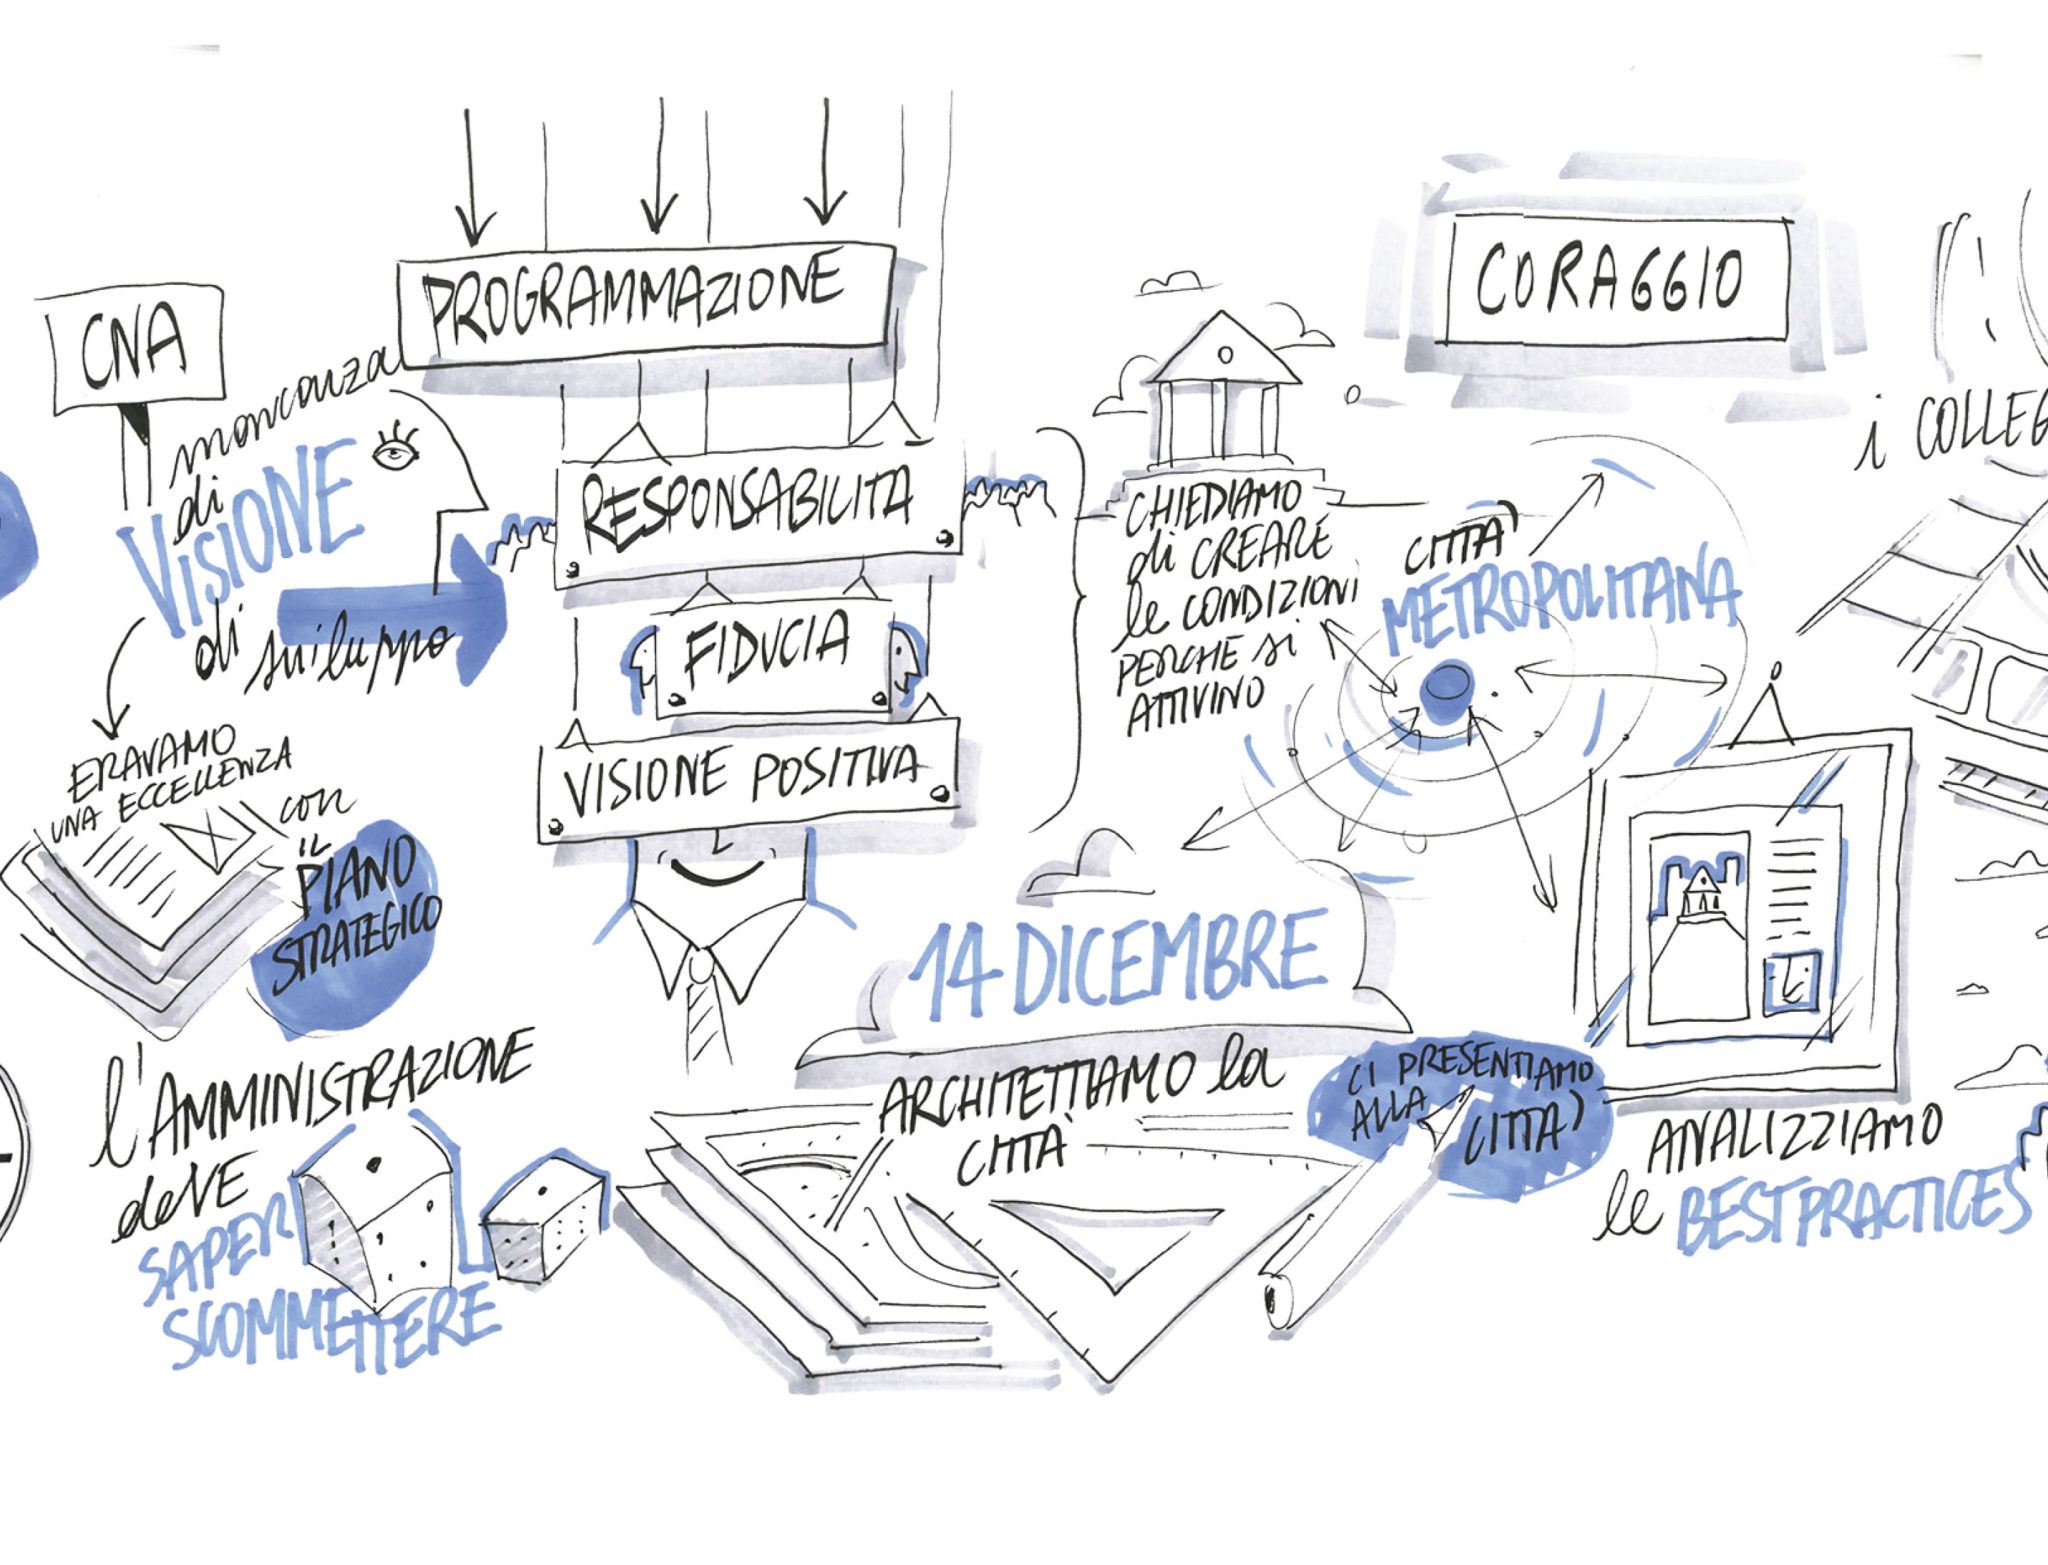 CNA
mancanza
di
VISIONE
di sviluppo
ERAVAMO
UNA ECCELLENZA
con
IL
PIANO
STRATEGICO
l'AMMINISTRAZIONE
deve
SAPER
SCOMMETTERE
PROGRAMMAZIONE
RESPONSABILITA
FIDUCIA
VISIONE POSITIVA
CHIEDIAMO
di CREARE
le CONDIZIONI
PERCHE si
ATTIVINO
CORAGGIO
CITTA'
METROPOLITANA
14 DICEMBRE
ARCHITETTIAMO la
CITTÀ
CI PRESENTIAMO
ALLA
CITTA'
ANALIZZIAMO
le BEST PRACTICES
i COLLEG